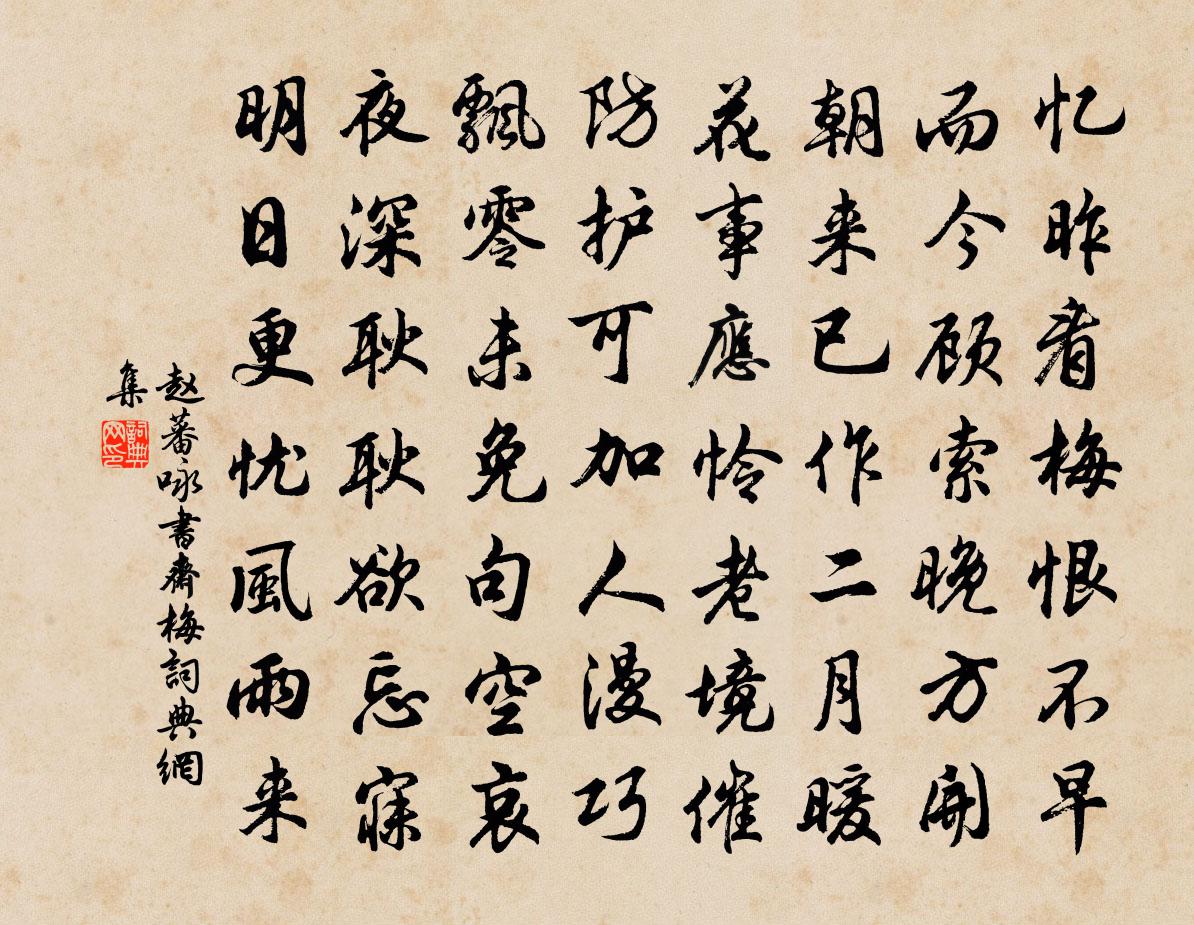 忆昨看梅恨不早
而今顾索晚方開
朝来已作二月暖
花事應怜老境催
防护可加人漫巧
飘零未免句空哀
夜深耿耿欲忘寐
明日更忧風雨来
赵蕃咏書齋梅詞典網
集
詞典
网印